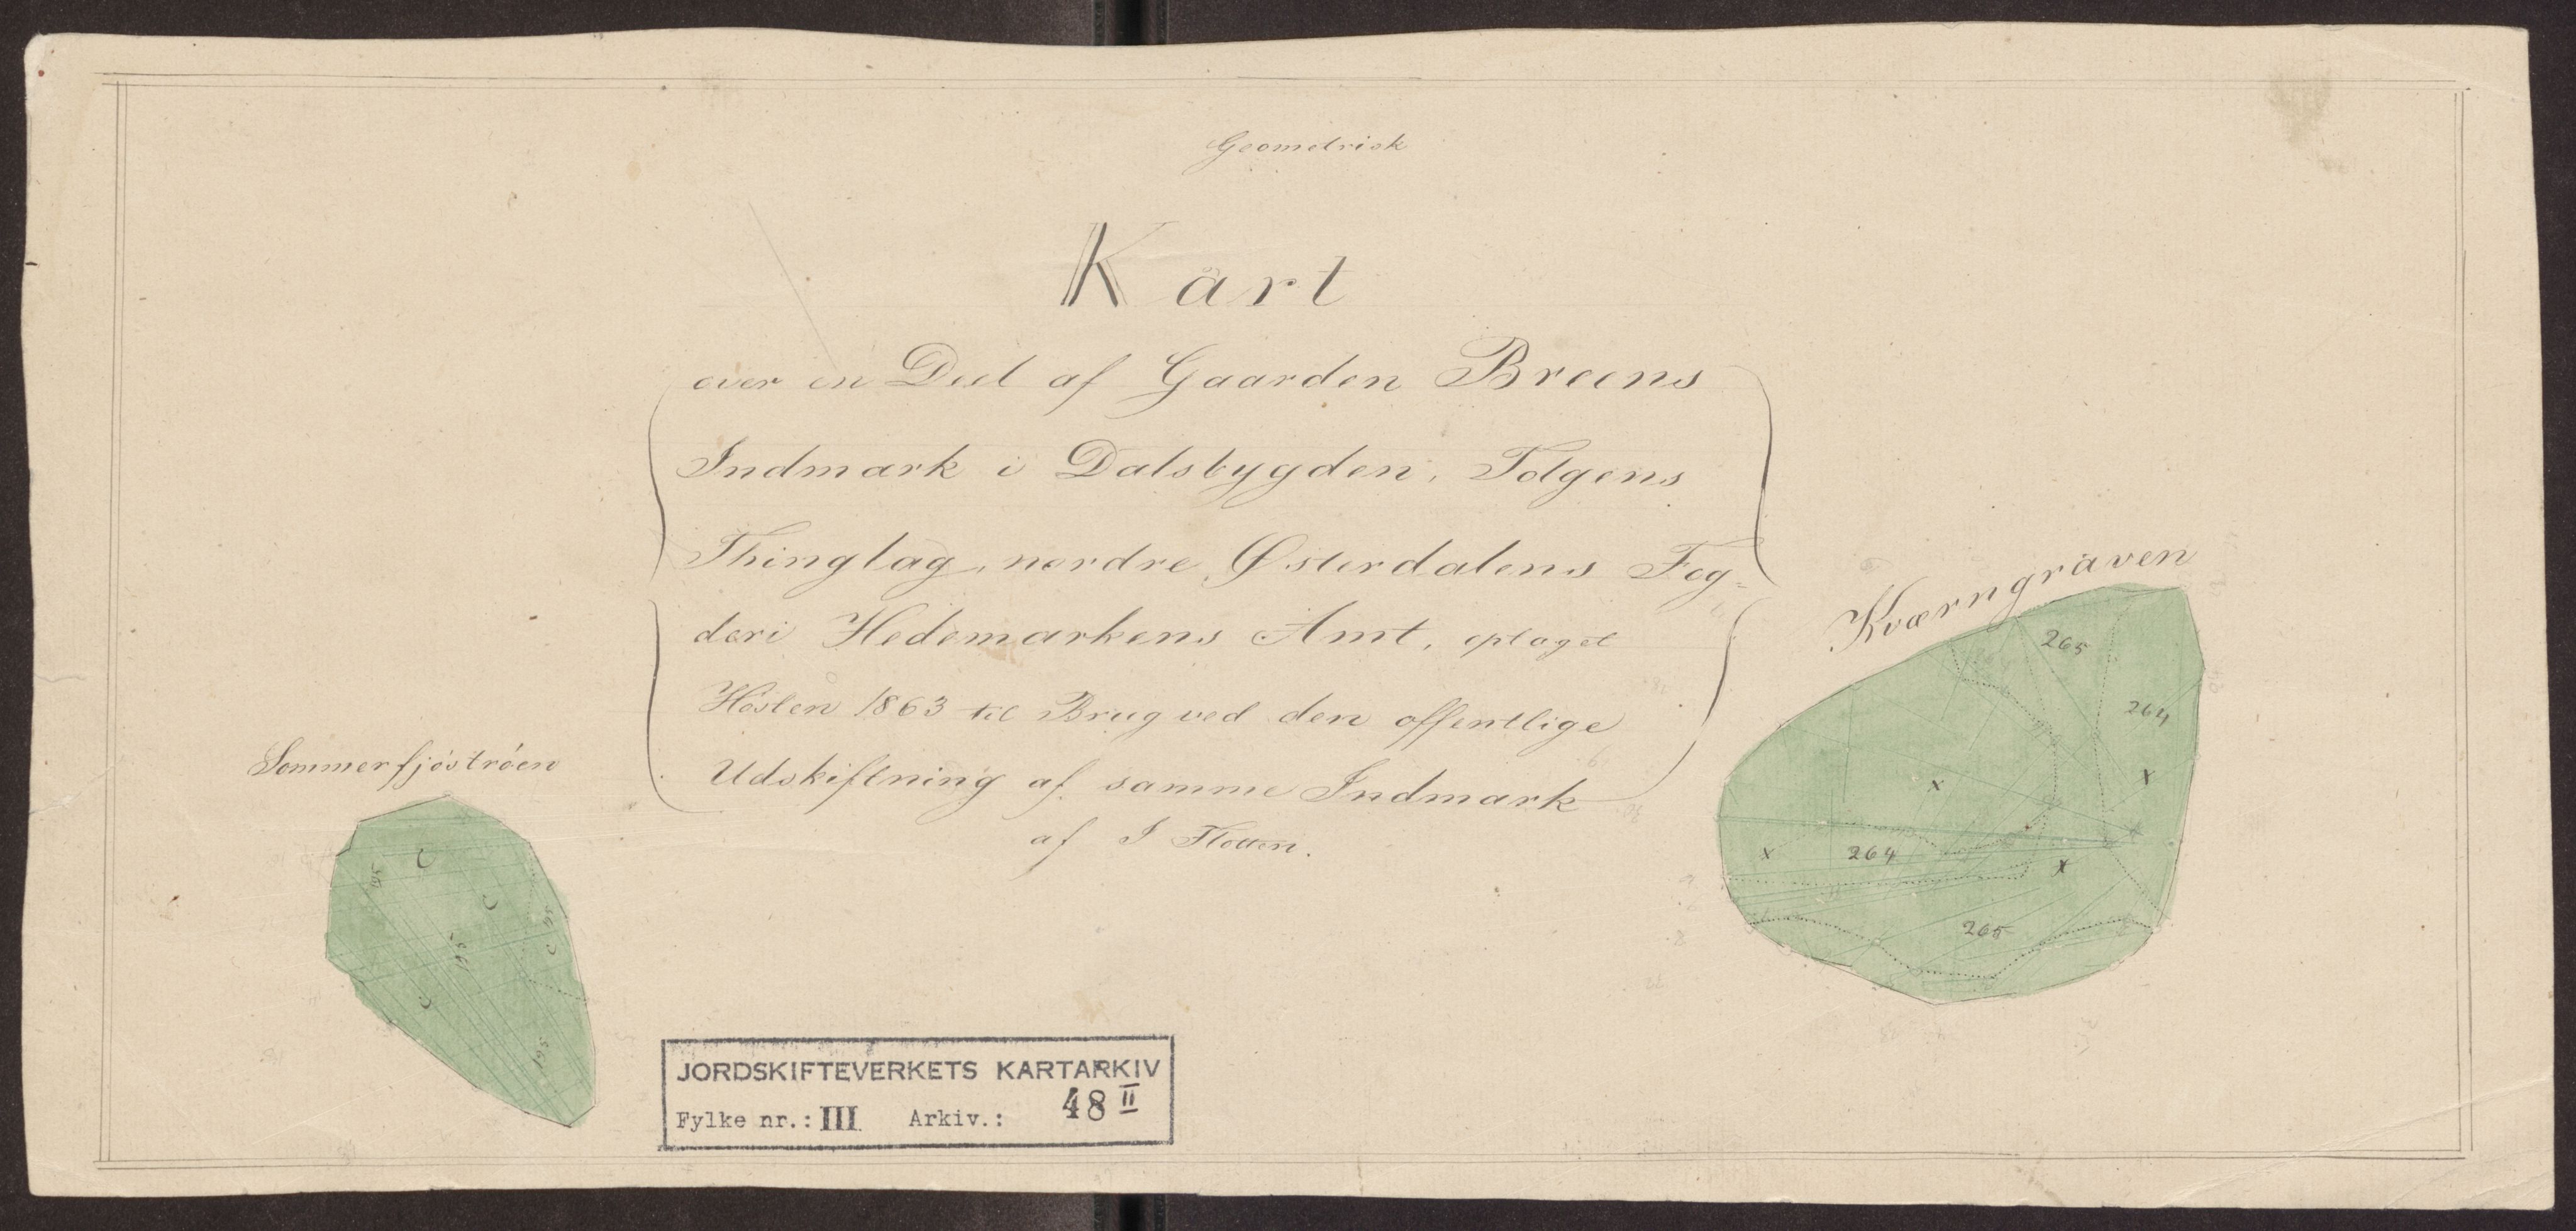 Geometrisk
Kart
over en Deel af Gaarden Breens
Indmark i Dalsbygden, Tolgens
Thinglag, nordre Østerdalens Fog-
deri Hedemarkens Amt, optaget
Høsten 1863 til Brug ved den offentlige
Udskiftning af samme Indmark
af I
Sommerfjøstrøen
C
195
C
195
C
C 195
195
Kværngraven
265
264
x
x
x
264
x
265
JORDSKIFTEVERKETS KARTARKIV
Fylke nr.: III Arkiv.: 48 II